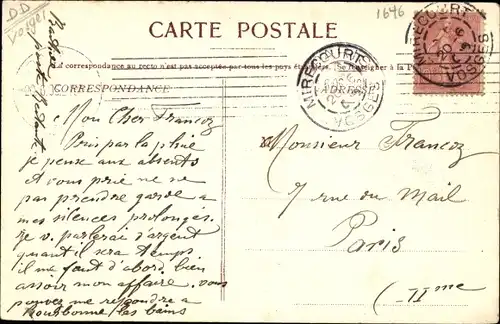 DD
Vosges
1646
CARTE POSTALE
La correspondance au recto n'est pas acceptée par tous les pays étrangers. Se renseigner à la Poste
CORRESPONDANCE
ADRESSE
MIRECOURT
VOSGES
MIRECOURT
VOSGES
Mon Cher Francoz
Pris par la pluie
je pense aux absents
et vous prie de ne
pas prendre garde a
mes silences prolongés.
Je v. parlerai d'argent
quand il sera temps
il me faut d'abord bien
assoir mon affaire. vous
pouvez me répondre a
Bourbonne les bains
poste Restante
Monsieur Francoz
7 rue du Mail
Paris
(IIme